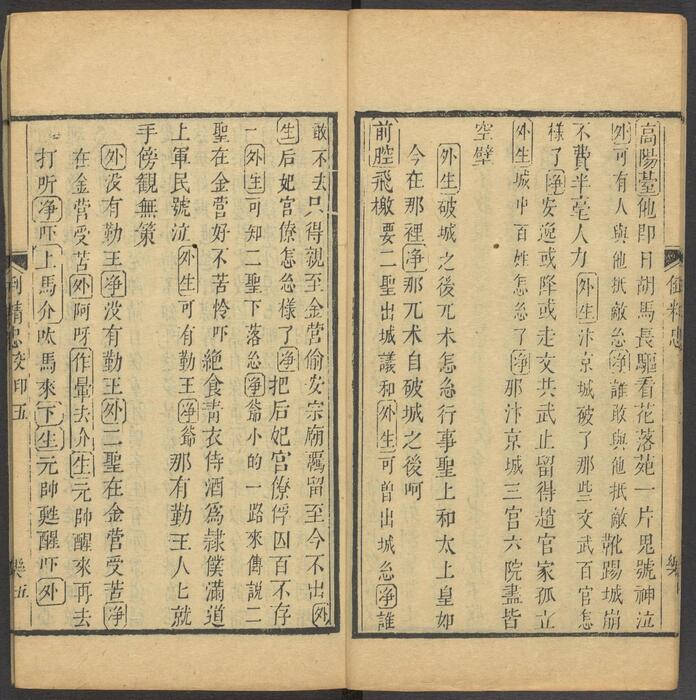 高陽臺他即日胡馬長驅看花落苑一片鬼號神泣
外可有人與他抵敵怹淨誰敢與他抵敵靴踢城崩
不費半毫人力外生汴京城破了那些文武百官怎
樣了淨安逸或降或走文共武止留得趙官家孤立
外生城中百姓怎怹了淨那汴京城三宮六院盡皆
空壁
外生破城之後兀朮怎怹行事聖上和太上皇如
今在那裡淨那兀朮自破城之後呵
前腔飛檄要二聖出城議和外生可曾出城怹淨誰
敢不去只得親至金營偷安宗廟羈留至今不出外
生后妃宮僚怎怹樣了淨把后妃宮僚俘囚百不存
一外生可知二聖下落怹淨爺小的一路來傳說二
聖在金營好不苦怜吓絕食青衣侍酒爲隷僕滿道
上軍民號泣外生可有勤王淨爺那有勤王人上就
手傍観無策
外没有勤王淨没有勤王外二聖在金營受苦淨
在金營受苦外阿呀作暈去介生元帥醒來再去
打听淨吓上馬介吠馬來下生元帥甦醒吓外
樂五